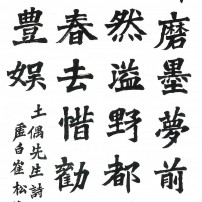 磨墨夢前
然溢野都
春去惜勸
豊娛
土偶先生詩
虛白崔松